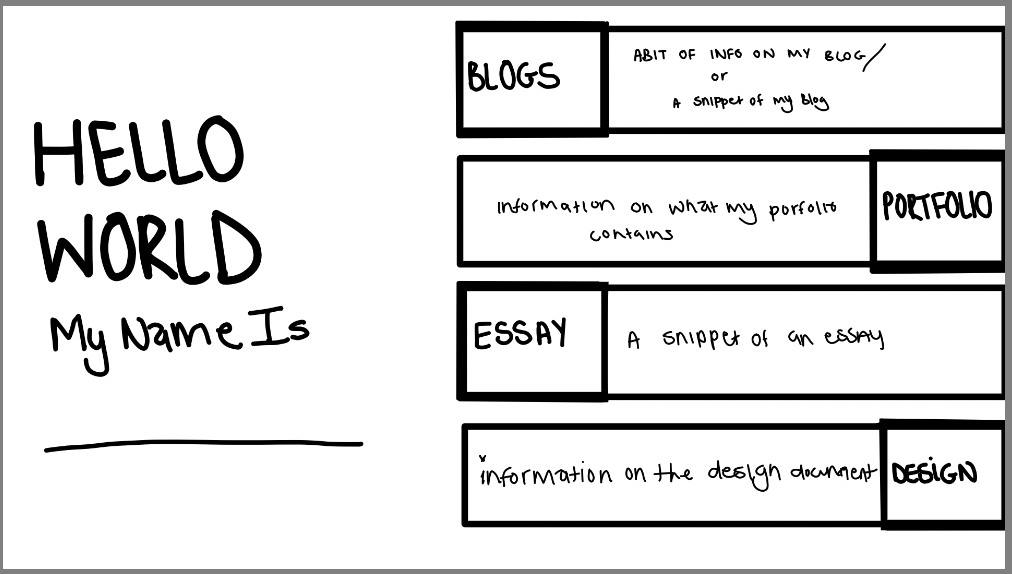 HELLO
WORLD
My Name Is
BLOGS
ABIT OF INFO ON MY BLOG/
or
A snippet of my blog
information on what my porfolio
contains
PORTFOLIO
ESSAY
A snippet of an essay
information on the design document
DESIGN